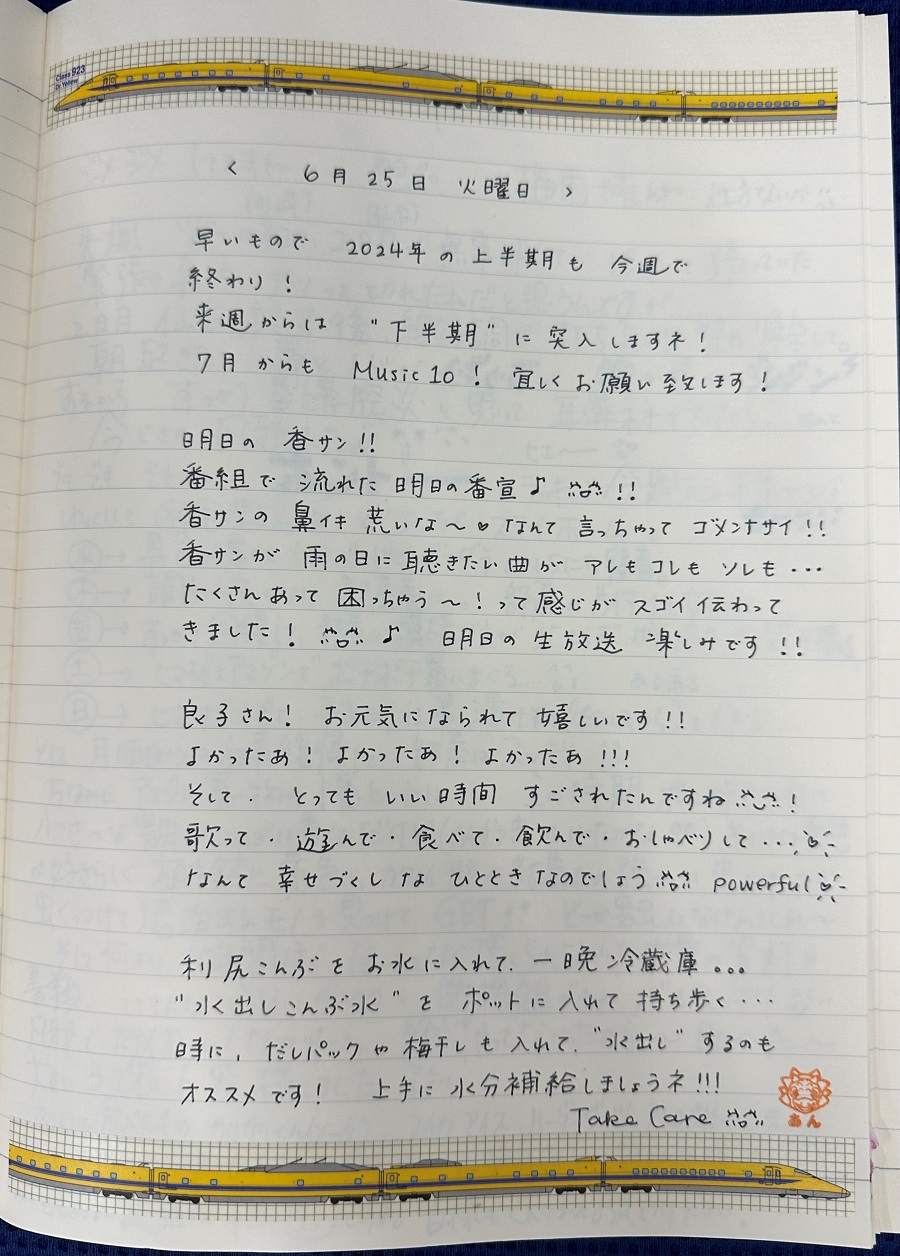 Class 923
Dr. Yellow
〈 6月25日 火曜日 〉
早いもので 2024年の上半期も 今週で
終わり!
来週からは "下半期" に突入しますネ!
7月からも Music10! 宜しくお願い致します!
明日の 香サン!!
番組で 流れた 明日の番宣♪ !!
香サンの 鼻イキ 荒いな〜♥ なんて 言っちゃって ゴメンナサイ!!
香サンが 雨の日に聴きたい曲が アレも コレも ソレも・・・
たくさんあって 困っちゃう〜!って感じが スゴイ伝わって
きました! ♪ 明日の生放送 楽しみです!!
良子さん! お元気になられて 嬉しいです!!
よかったあ!よかったあ!よかったあ!!!
そして. とっても いい時間 すごされたんですね !
歌って・遊んで・食べて・飲んで・おしゃべりして・・・
なんて 幸せづくしな ひとときなのでしょう powerful
利尻こんぶを お水に入れて. 一晩冷蔵庫...
"水出しこんぶ水" を ポットに入れて 持ち歩く・・・
時に, だしパックや梅干しも 入れて. "水出し" するのも
オススメです! 上手に 水分補給しましょうネ!!!
Take Care
あん